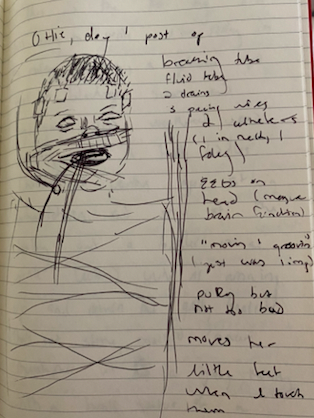 day 1 post op
breathing tube
fluid tube
2 drains
3 pacing wires
2
(1 in neck, 1
foley)
EEGs on
head (
brain function)
"moving" &
1 just was limp)
puffy but
not too bad
moves her
little feet
when I touch
them